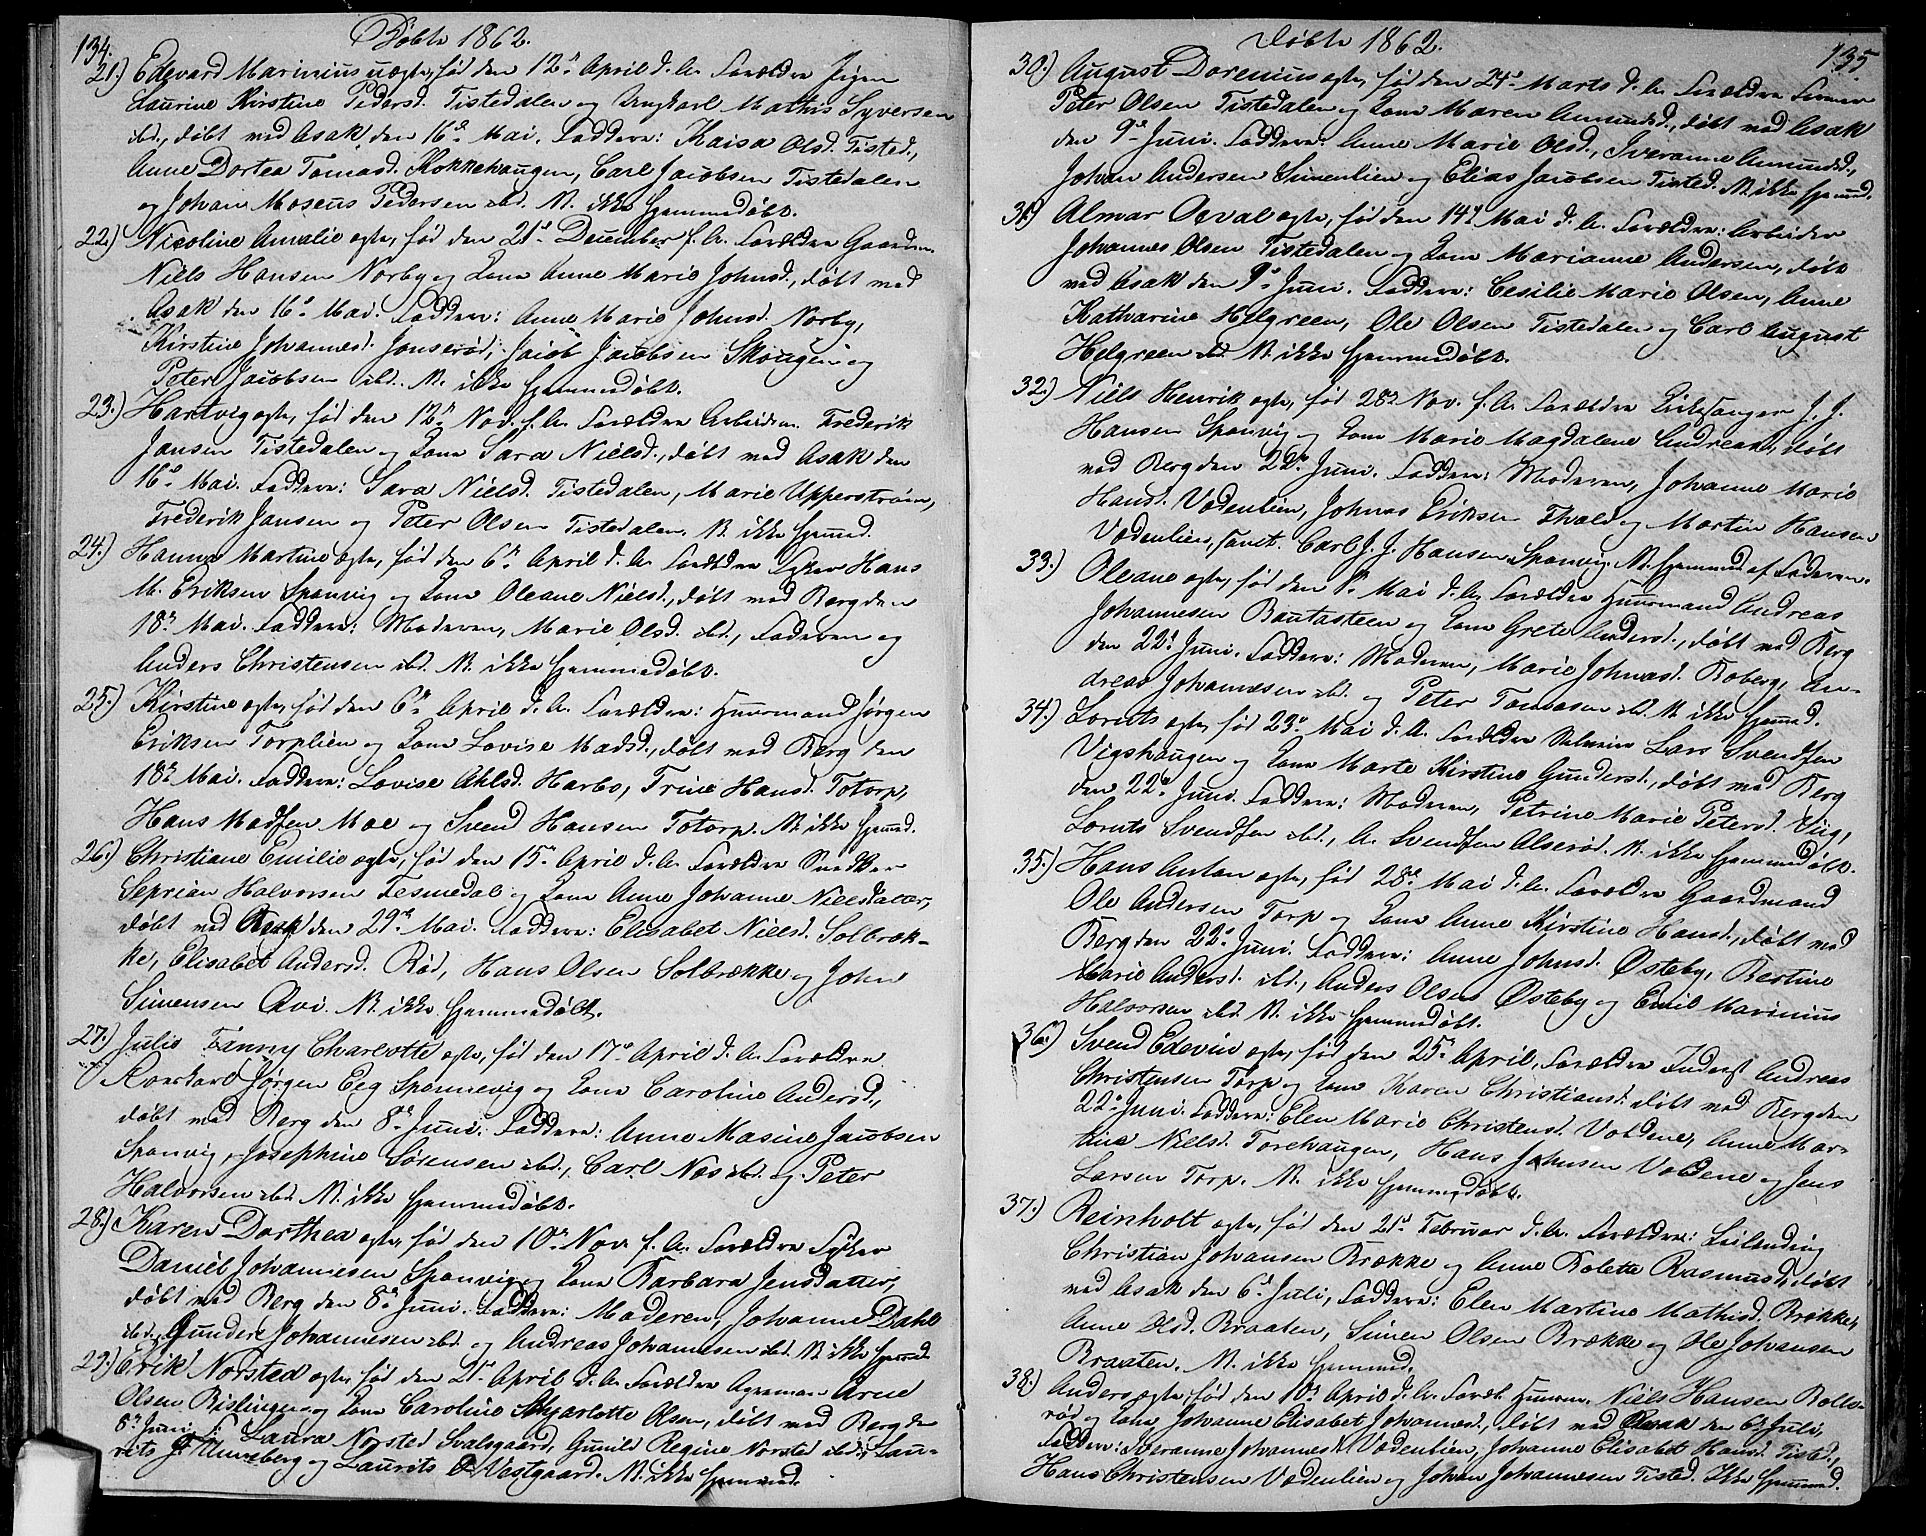 134.
Døbte 1862.
21.) Edevard Marinius uægte, fød den 12te April d. A. Forældre Pigen
Laurine Kirstine Pedersd. Tistedalen og Ungkarl Mathis Syversen
ibd., døbt ved Asak den 16de Mai. Faddere: Kaisa Olsd. Tisted.,
Anne Dortea Tomasd. Kokkehaugen, Carl Jacobsen Tistedalen
og Johan Moseus Pedersen ibd. N. ikke hjemmedøbt.
22.) Nicoline Amalie ægte, fød den 21de December f. A. Forældre Gaardm.
Niels Hansen Norby og Kone Anne Marie Johnsd., døbt ved
Asak den 16de Mai. Faddere: Anne Marie Johnsd. Norby,
Kirstine Johannesd. Jonserød, Jacob Jacobsen Skougen og
Peter Jacobsen ibd. N. ikke hjemmedøbt.
23.) Hartvig ægte, fød den 12te Nov. f. A. Forældre Arbeidsm. Frederik
Jansen Tistedalen og Kone Sara Nielsd., døbt ved Asak den
16de Mai. Faddere: Sara Nielsd. Tistedalen, Marie Upperstrøm,
Frederik Jansen og Peter Olsen Tistedalen. N. ikke hjemmd.
24.) Hanna Martine ægte, fød den 6te April d. A. Forældre Hans
M. Eriksen Sponvig og Kone Oleane Nielsd., døbt ved Berg den
18de Mai. Faddere: Moderen, Marie Olsd. ibd., Faderen og
Anders Christensen ibd. N. ikke hjemmedøbt.
25.) Kirstine ægte, fød den 6te April d. A. Forældre: Huusmand Jørgen
Eriksen Torplien og Kone Lovise Madsd., døbt ved Berg den
18de Mai. Faddere: Lovise Ahlsd. Harbo, Trine Hansd. Totorp,
Hans Madsen Moe og Svend Hansen Totorp. N. ikke hjmd.
26.) Christiane Emilie ægte, fød den 15de April d. A. Forældre Snedker
Seprian Halvorsen Tesmedal og Kone Anne Johanne Nielsdatter,
døbt ved Asak den 29de Mai. Faddere: Elisabet Nielsd. Solbræk-
ke, Elisabet Andersd. Rød, Hans Olsen Solbrække og John
Simensen Avi. N. ikke hjemmedøbt.
27.) Julie Fanny Charlotte ægte, fød den 17de April d. A. Forældre
Jørgen Eeg Sponnevig og Kone Caroline Andersd.,
døbt ved Berg den 8de Juni. Faddere: Anne Masine Jacobsen
Sponvig, Josephine Sørensen ibd., Carl Næs ibd. og Peter
Halvorsen ibd. N. ikke hjemmedøbt.
28.) Karen Dorthea ægte, fød den 10de Nov. f. A. Forældre
Daniel Johannesen Sponvig og Kone Barbara Jensdatter,
døbt ved Berg den 8de Juni. Faddere: Moderen, Johanne Dahl
ibd., Gunder Johannesen ibd. og Andreas Johannesen ibd. N. ikke hjmd.
29.) Erik Norsted ægte, fød den 21de April d. A. Forældre Arne
Olsen Rislingen og Kone Caroline Charlotte Olsen, døbt ved Berg den
8de Juni. F.: Laura Norsted Svalsgaard, Gunild Regine Norsted ibd., Lau-
rits J. Flineberg og Laurits O. Vestgaard. N. ikke hjemmd.
Døbte 1862.
135
30.) August Dorenius ægte, fød den 24de Marts d. A. Forældre
Peter Olsen Tistedalen og Kone Maren Amundsd., døbt ved Asak
den 9de Juni. Faddere: Anne Marie Olsd., Iveranne Amundsd.,
Johan Andersen Simenlien og Elias Jacobsen Tisted. N. ikke hjmd.
31.) Almar Oval ægte, fød den 14de Mai d. A. Forældre: Arbeider
Johannes Olsen Tistedalen og Kone Marianne Andersen, døbt
ved Asak den 9de Juni. Faddere: Cesilie Marie Olsen, Anne
Katharine Helgreen, Ole Olsen Tistedalen og Carl August
Helgreen ibd. N. ikke hjemmedøbt.
32.) Niels Henrik ægte, fød 28de Nov. f. A. Forældre Kirkesanger J. J.
Hansen Sponvig og Kone Marie Magdalene Andreasd., døbt
ved Berg den 22de Juni. Faddere: Moderen, Johanne Marie
Hansd. Vadenlien, Johnas Eriksen Fhald og Martin Hansen
Vadenlien, samt Carl J. J. Hansen Sponvig. N. hjemmd. af Faderen.
33.) Oleane ægte, fød den 1ste Mai d. A. Forældre Huusmand Andreas
Johannesen Bautasteen og Kone Grete Andersd., døbt ved Berg
den 22de Juni. Faddere: Moderen, Marie Johnasd. Roberg, An-
dreas Johannesen ibd. og Peter Tomasen ibd. N. ikke hjemmd.
34.) Lorents ægte, fød 23de Mai d. A. Forældre Lars Svendsen
Vigshaugen og Kone Marte Kirstine Gundersd., døbt ved Berg
den 22de Juni. Faddere: Moderen, Petrine Marie Petersd. Vig,
Lorents Svendsen ibd., A. Svendsen Alserød. N. ikke hjemmedøbt.
35.) Hans Anton ægte, fød 28de Mai d. A. Forældre Gaardmand
Ole Andersen Torp og Kone Anne Kirstine Hansd., døbt ved
Berg den 22de Juni. Faddere: Anne Johnsd. Østeby, Bertine
Marie Andersd. ibd., Anders Olsen Østeby og Emil Marinius
Halvorsen ibd. N. ikke hjemmedøbt.
36.) Svend Edevin ægte, fød den 25de April, Forældre Inderst Andreas
Christensen Torp og Kone Karen Christiansd. døbt ved Berg den
22de Juni. Faddere: Elen Marie Christensd. Voldene, Anne Mar-
tine Nielsd. Torehaugen, Hans Johnsen Voldene og Jens
Larsen Torp. N. ikke hjemmedøbt.
37.) Reinholt ægte, fød den 21de Februar d. A. Forældre: Leilending
Christian Johansen Brække og Anne Bolette Rasmusd., døbt
ved Asak den 6te Juli, Faddere: Elen Martine Mathisd. Brække,
Anne Olsd. Braaten, Simen Olsen Brække og Ole Johansen
Braaten. N. ikke hjemmd.
38.) Anders ægte, fød den 10de April d. A. Foræld. Huusm. Niels Hansen Bolle-
rød og Kone Johanne Elisabet Johannesd., døbt ved Asak den 6te Juli,
Faddere: Iveranne Johannesd. Vadenlien, Johanne Elisabet Hansd. Tisted.,
Hans Christensen Vadenlien og Johan Johannesen Tisted. Ikke hjemmd.